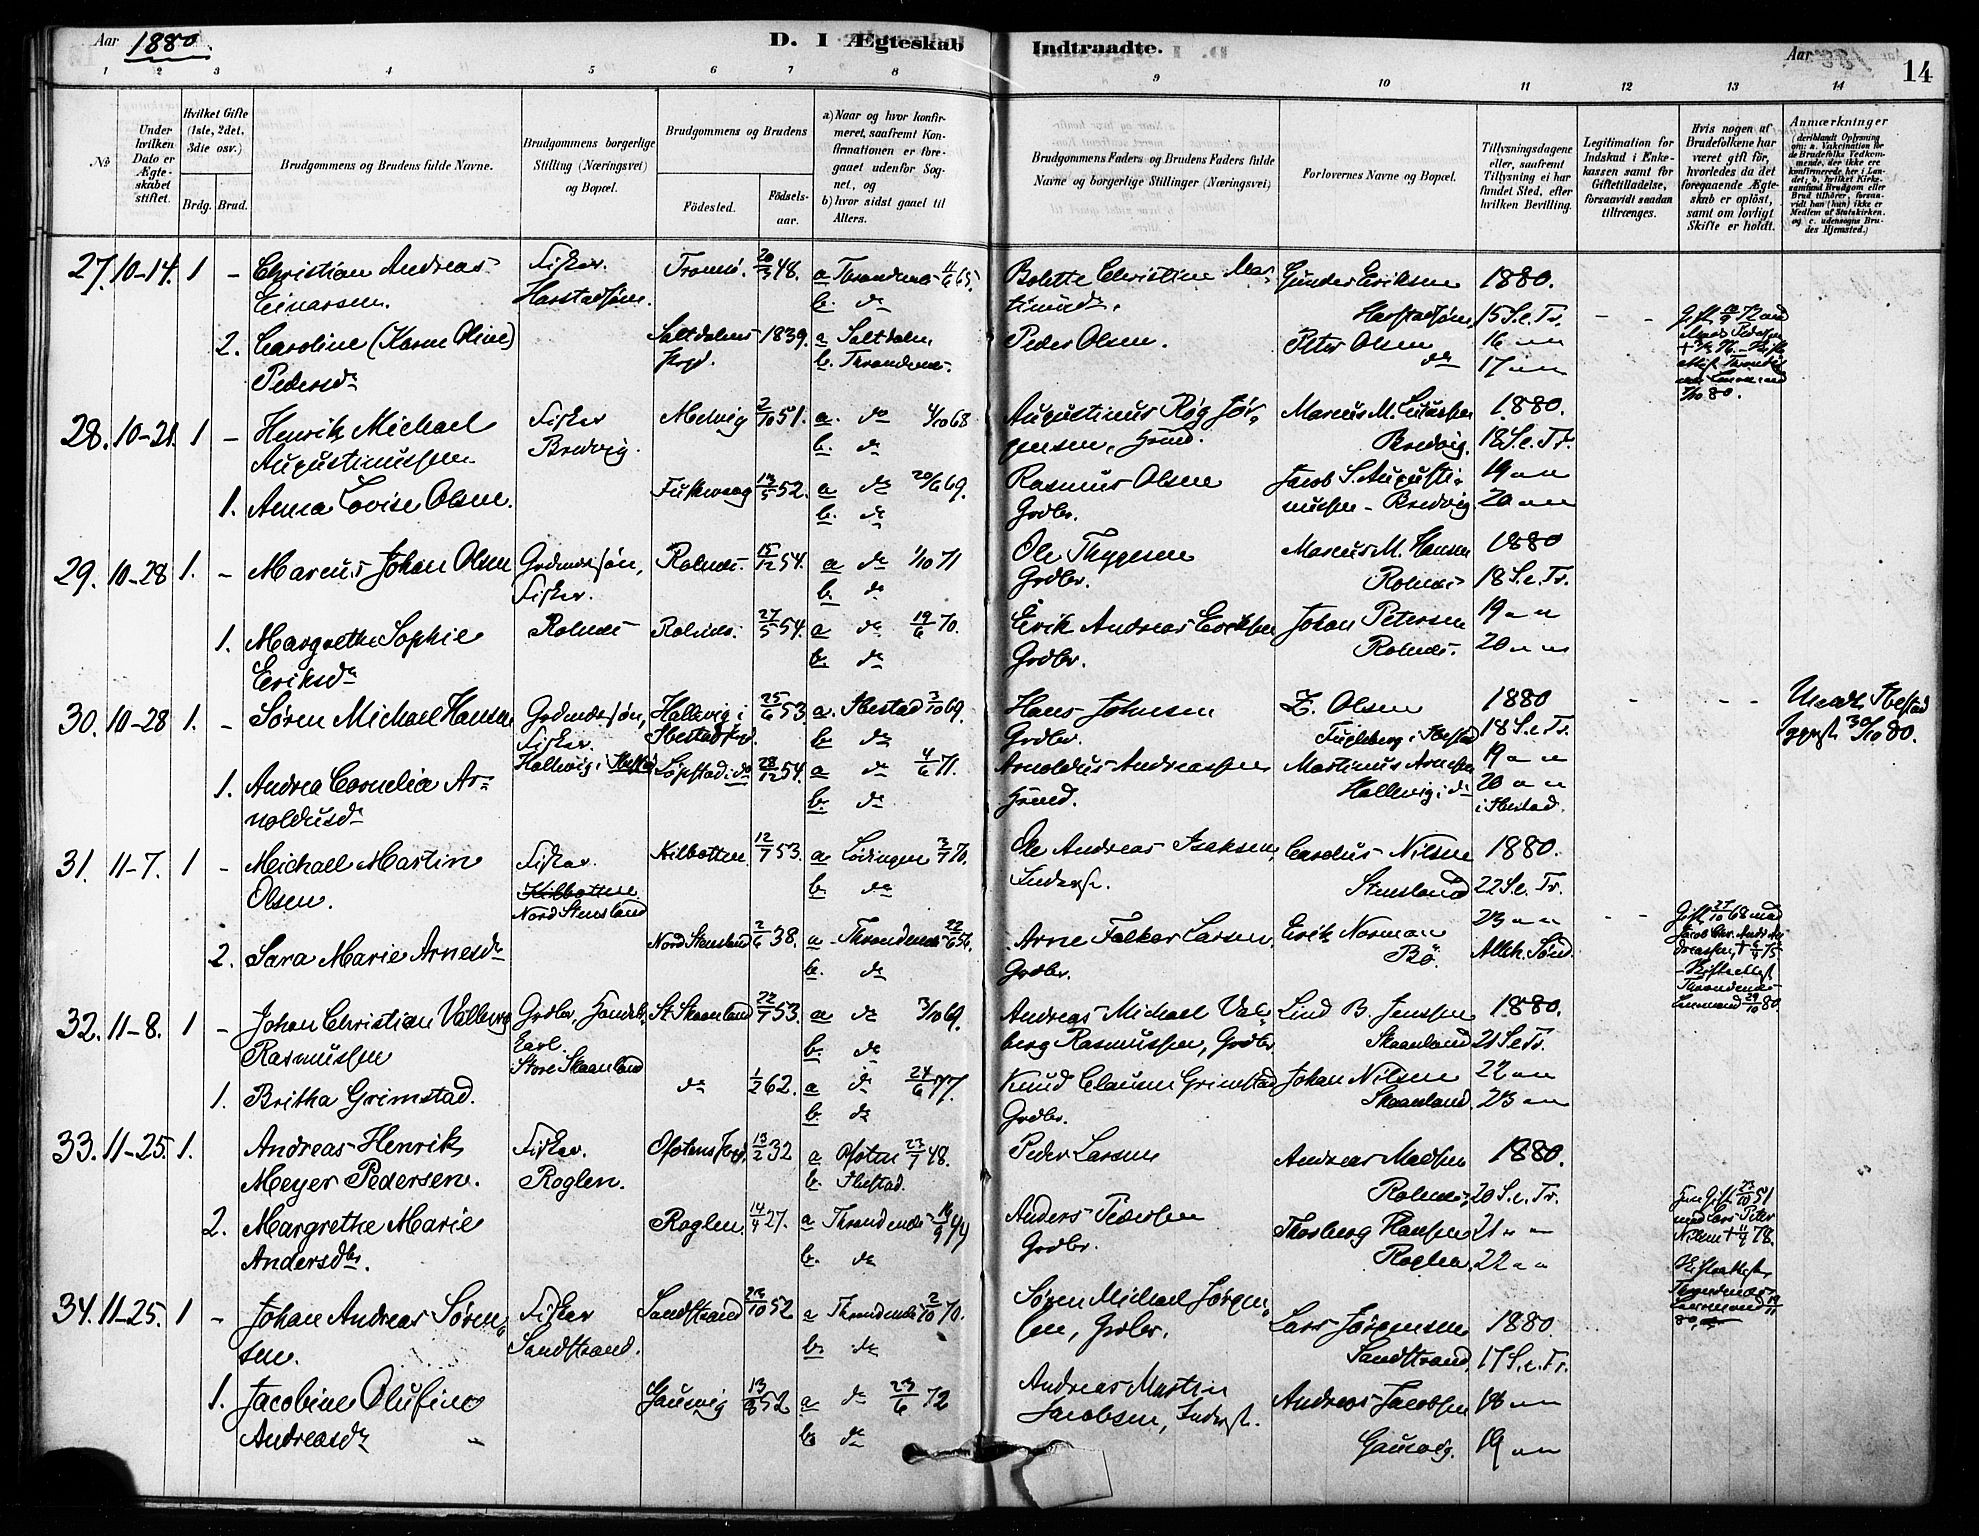 Aar 1880.
D. I Ægteskab Indtraadte.
Aar
14
1 2 3 4 5 6 7 8 9 10 11 12 13 14
No
Under hvilken Dato er Ægteskabet stiftet.
Hvilket Gifte (1ste, 2det, 3die osv.)
Brdg. Brud.
Brudgommens og Brudens fulde Navne.
Brudgommens borgerlige Stilling (Næringsvei) og Bopæl.
Brudgommens og Brudens
Fødested.
Fødselsaar.
a) Naar og hvor konfirmeret, saafremt Konfirmationen er foregaaet udenfor Sognet, og
b) hvor sidst gaaet til Alters.
Brudgommens Faders og Brudens Faders fulde Navne og borgerlige Stillinger (Næringsvei)
Forlovernes Navne og Bopæl.
Tillysningsdagene eller, saafremt Tillysning ei har fundet Sted, efter hvilken Bevilling.
Legitimation for Indskud i Enkekassen samt for Giftetilladelse, forsaavidt saadan tiltrænges.
Hvis nogen af Brudefolkene har været gift før, hvorledes da det foregaaende Ægteskab er opløst, samt om lovligt Skifte er holdt.
Anmærkninger
(deriblandt Oplysning om: a. Vakcination for de Brudefolks Vedkommende, der ikke ere konfirmerede her i Landet; b. hvilket Kirkesamfund Brudgom eller Brud tilhører, forsaavidt han (hun) ikke er Medlem af Statskirken, og c. udensogns Brudes Hjemsted.)
27. 10-14. 1 - Christian Andreas Fisker. Tromsø. 20/3 48. a Throndenes 4/6 65. Bolette Christine Mar- Gunder Eriksen 1880.
Einarsen. Harstadsjøen. b. do timusdr. Harstadsjøen 15 S. e. Tr.
2. Caroline (Karen Oline) Saltdalens 1839. a Saltdalen Peder Olsen. Peter Olsen 16 " "
Pedersdr Prgd. b. Throndenes. do 17 " "
28. 10-21. 1 - Henrik Michael Fisker Melvig 2/10 51. a. do 4/10 68 Augustinus Røg Jør- Marcus M. 1880.
Augustinussen Bredvig. b. do gensen, Hmd. Bredvig. 18 S. e. Tr.
1. Anna Lovise Olsen. Fuskevaag 13/5 52. a do 20/6 69. Rasmus Olsen Jacob S. Augusti- 19 " "
b. do Grdbr. nussen - Bredvig. 20 " "
29. 10-28 1. - Marcus Johan Olsen Grdmdssøn, Rolnes. 15/12 54. a do 1/10 71 Ole Thygesen Marcus M. Hansen 1880
Fisker. b. do Grdbr. Rolnes 18 S. e. Tr.
1. Margrethe Sophie Rolnes Rolnes. 27/5 54. a do 19/6 70. Erik Andreas Eriksen Johan Petersen 19 " "
Eriksdr b. do Grdbr. Rolnes. 20 " "
30. 10-28 1. - Søren Michael Hansen Grdmdssøn, Hallevig i 25/6 53 a. Ibestad 3/10 69. Hans Johnsen Z. Olsen 1880 - - - Ibestad
Fisker. Ibestad Prgd. b. do Grdbr. Fugleberg i Ibestad 18 S. e. Tr. 30/10 80.
Hallevig i Ibestad
1. Andrea Cornelia Ar- Løpstad i do 28/12 54. a do 4/6 71. Arnoldus Andreassen Martinus Arnesen 19 " "
noldusdr b. do Hmd. Hallevig i do 20 " "
i Ibestad.
31. 11-7. 1 - Michael Martin Fisker. Kilbotten 12/7 53. a Lødingen 2/7 70. Ole Andreas Isaksen, Carolus Nilsen 1880.
Olsen. Kilbotten b. do Inderst. Stensland 22 S. e. Tr.
Nord Stensland
2. Sara Marie Arnesdr Nord Stensland 2/6 38. a Throndenes 22/6 56. Arne Falker Larsen Erik Norman 23 " "
b. do Grdbr. Bø. Alleh. Sønd.
Gift 27/10 68 med
32. 11-8. 1 - Johan Christian Valberg Grdbr, Handels- St. Skaanland 22/7 53. a do 3/10 69. Andreas Michael Val- Lind B. Jenssen 1880.
Rasmussen Store Skaanland b. do berg Rasmussen, Grdbr Skaanland 21 S. e. Tr.
1. Britha Grimstad. do 1/2 62. a do 24/6 77. Knud Clausen Grimstad Johan Nilsen 22 " "
b. do Grdbr. Skaanland. 23 " "
33. 11-25. 1. Andreas Henrik Fisker. Ofotens Prgd. 13/2 32 a Ofoten 23/7 48. Peder Larsen Andreas Madsen 1880.
Meyer Pedersen. Roglen. b. Ibestad. Rolnes 20 S. e. Tr.
2. Margrethe Marie Roglen 14/4 27. a Throndenes 14/9 44 Anders Pedersen Thorberg Hansen 21 " "
Andersdtr. b. do Grdbr. Roglen 22 " "
Gift 23/10 51
med Lars Peter
Nilsen † 11/4 78.
34. 11-25. 1 - Johan Andreas Søren- Fisker Sandstrand 23/10 52 a Throndenes 2/10 70. Søren Michael Jørgen- Lars Jørgensen 1880.
sen. Sandstrand. b. do sen, Grdbr. Sandstrand. 17 S. e. Tr.
1. Jacobine Olufine Gausvig 13/8 52 a do 23/6 72 Andreas Martin Andreas Jacobsen 18 " "
Andreasdr b. do Jacobsen, Inderst. Gausvig. 19 " "